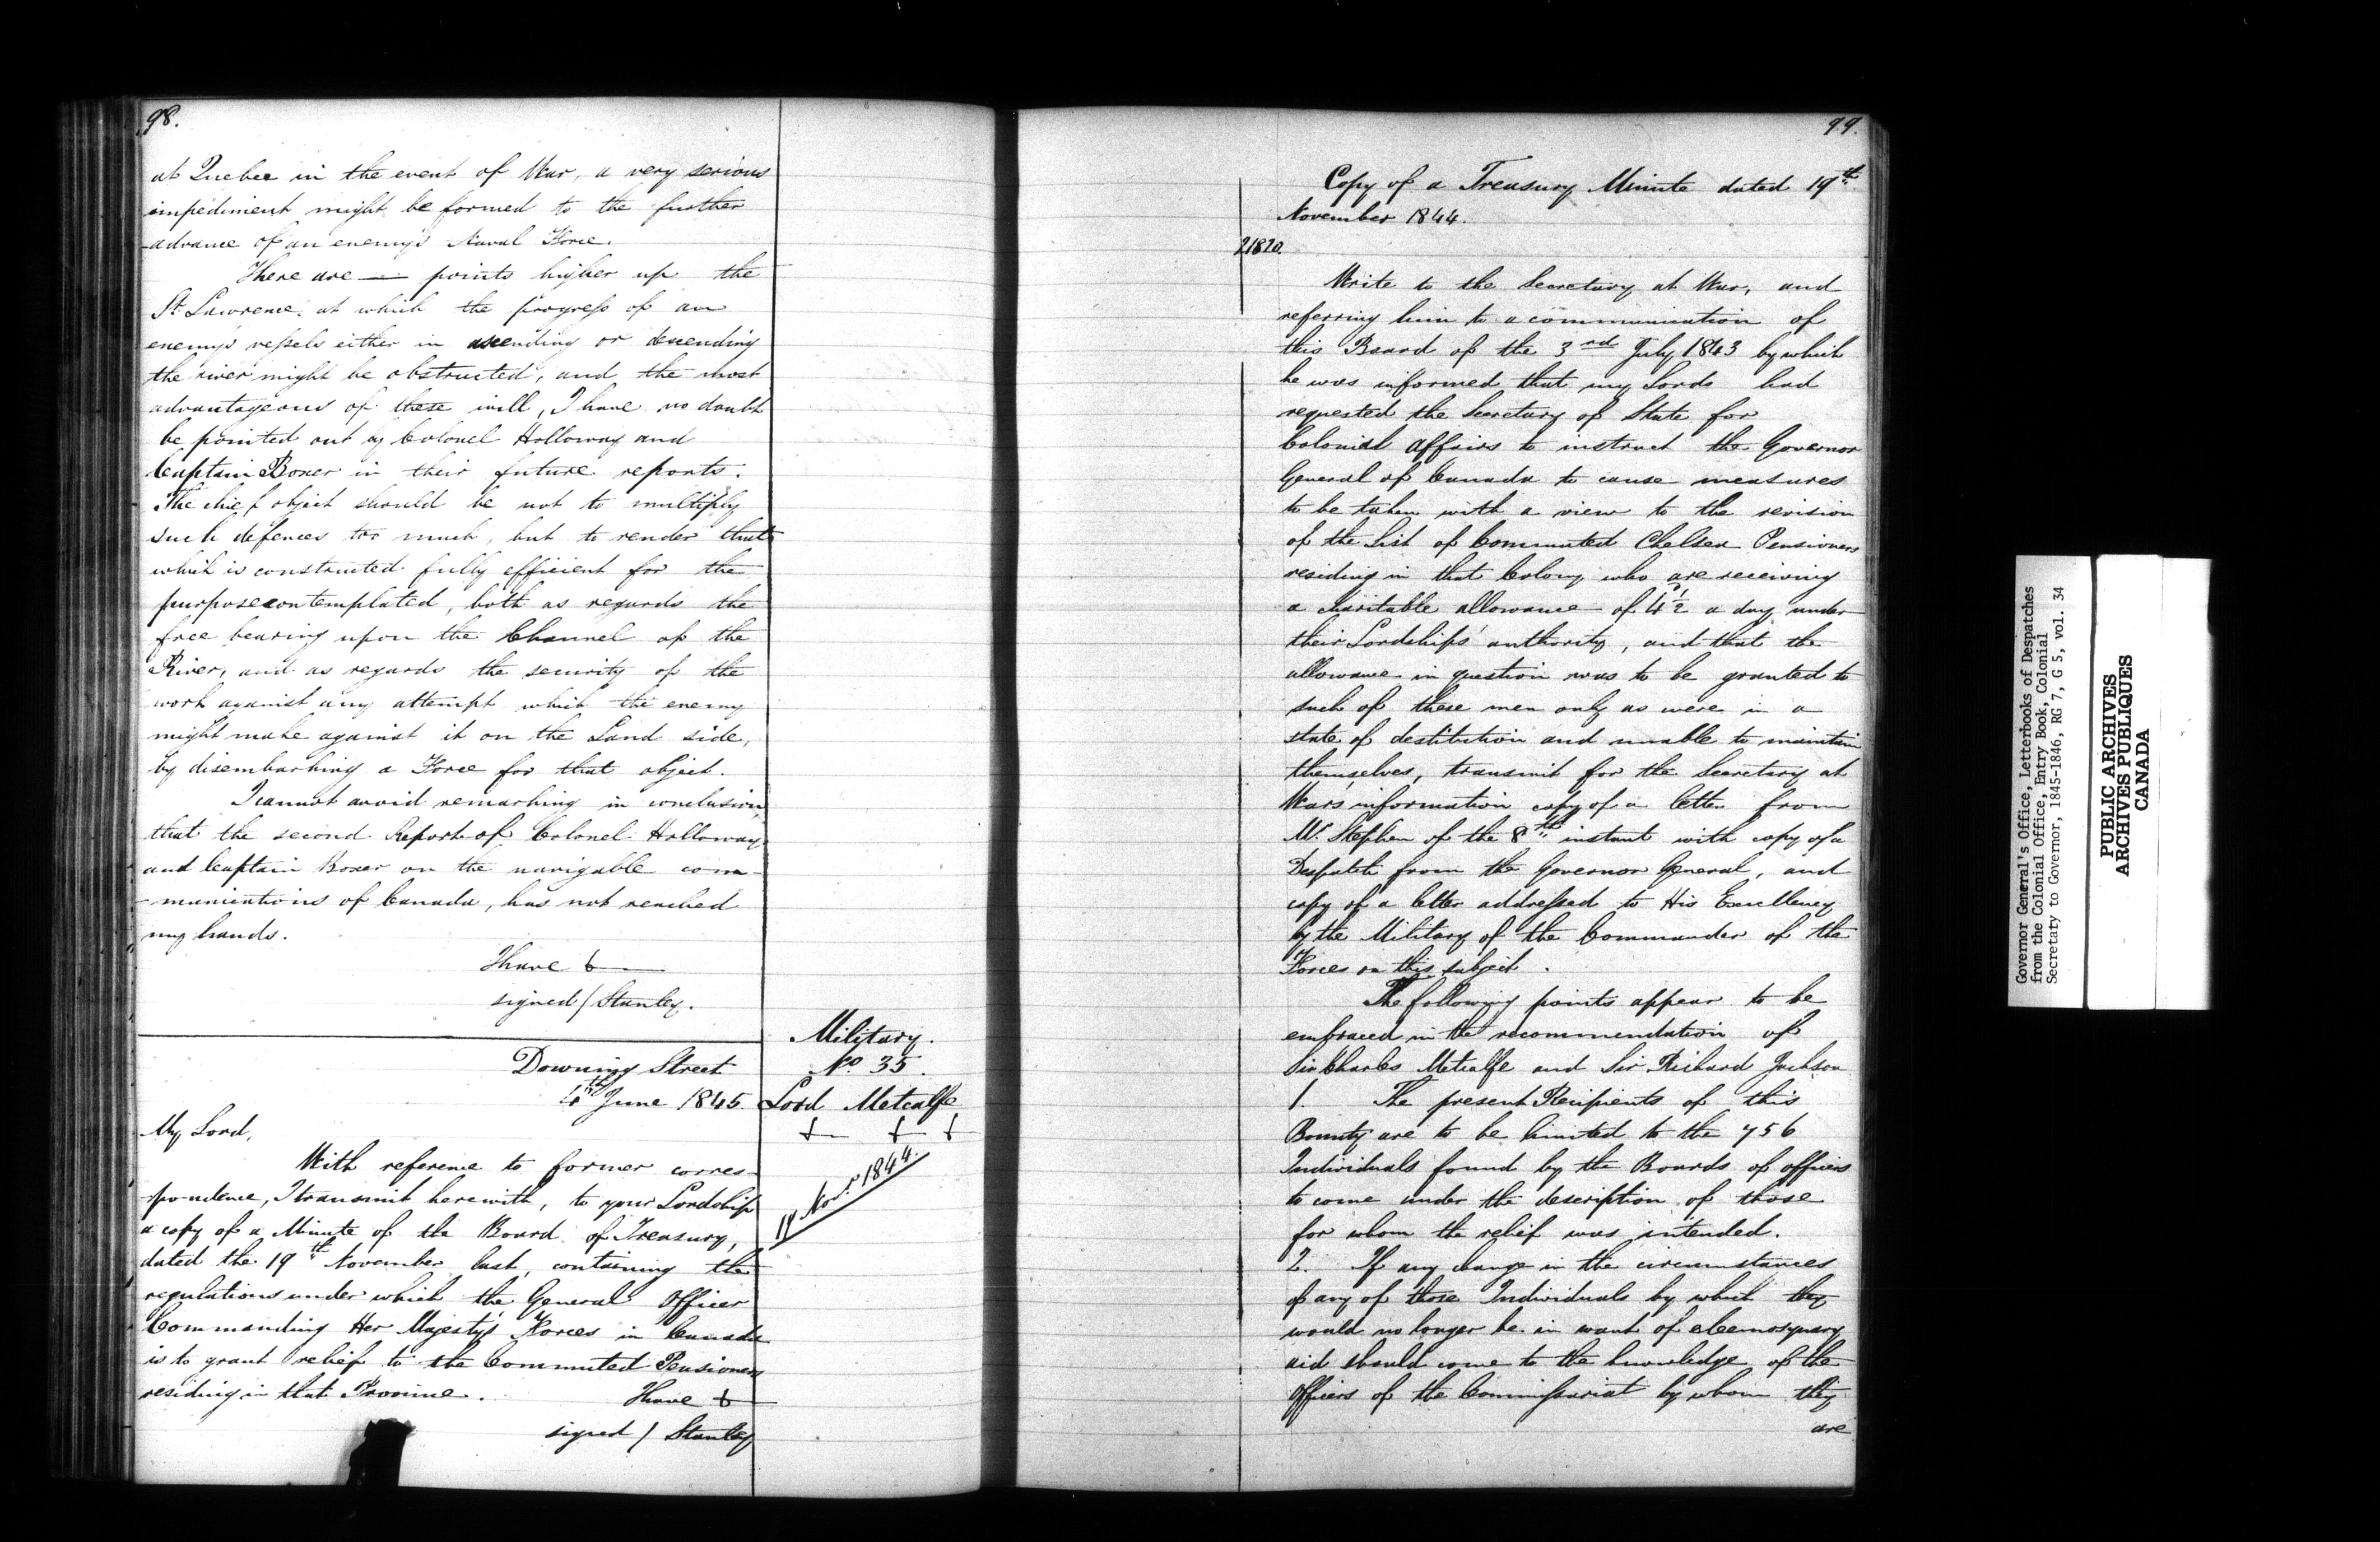 98.
at Quebec in the event of War, a very serious
impediment might be formed to the further
advance of an enemy's Naval Force.
There are — points higher up the
St Lawrence, at which the progress of an
enemy's vessels either in ascending or descending
the river might be obstructed, and the most
advantageous of these will, I have no doubt
be pointed out by Colonel Holloway and
Captain Boxer in their future reports.
The chief object should be not to multiply
such defences too much, but to render that
which is constructed fully efficient for the
purpose contemplated, both as regards the
free bearing upon the Channel of the
River, and as regards the security of the
work against any attempt which the enemy
might make against it on the Land side,
by disembarking a Force for that object.
I cannot avoid remarking in conclusion,
that the second Report of Colonel Holloway
and Captain Boxer on the navigable com-
-munications of Canada, has not reached
my hands.
I have &—
signed / Stanley.
Military.
No 35.
Lord Metcalfe
Downing Street
4th June 1845.
My Lord,
With reference to former corres-
-pondence, I transmit herewith, to your Lordship
a copy of a Minute of the Board of Treasury,
dated the 19th November last, containing the
regulations under which the General Officer
Commanding Her Majesty's Forces in Canada
is to grant relief to the Commuted Pensioners
residing in that Province. I have &—
signed / Stanley
19 Novr 1844.
99.
Copy of a Treasury Minute dated 19th
November 1844.
21820.
Write to the Secretary at War, and
referring him to a communication of
this Board of the 3rd July 1843 by which
he was informed that my Lords had
requested the Secretary of State for
Colonial Affairs to instruct the Governor
General of Canada to cause measures
to be taken with a view to the revision
of the List of Commuted Chelsea Pensioners
residing in that Colony who are receiving
a charitable allowance of 4½ a day under
their Lordships' authority, and that the
allowance in question was to be granted to
such of these men only as were in a
state of destitution and unable to maintain
themselves, transmit for the Secretary at
War's information copy of a letter from
Mr Stephen of the 8th instant with copy of a
Despatch from the Governor General, and
copy of a letter addressed to His Excellency
by the Military of the Commander of the
Forces on this subject.
The following points appear to be
embraced in the recommendation of
Sir Charles Metcalfe and Sir Richard Jackson
1. The present Recipients of this
Bounty are to be limited to the 756
Individuals found by the Boards of officers
to come under the description of those
for whom the relief was intended.
2. If any change in the circumstances
of any of those Individuals by which they
would no longer be in want of eleemosynary
aid should come to the knowledge of the
Officers of the Commissariat by whom they
are
Governor General's Office, Letterbooks of Despatches
from the Colonial Office, Entry Book, Colonial
Secretary to Governor, 1845-1846, RG 7, G 5, vol. 34
PUBLIC ARCHIVES
ARCHIVES PUBLIQUES
CANADA